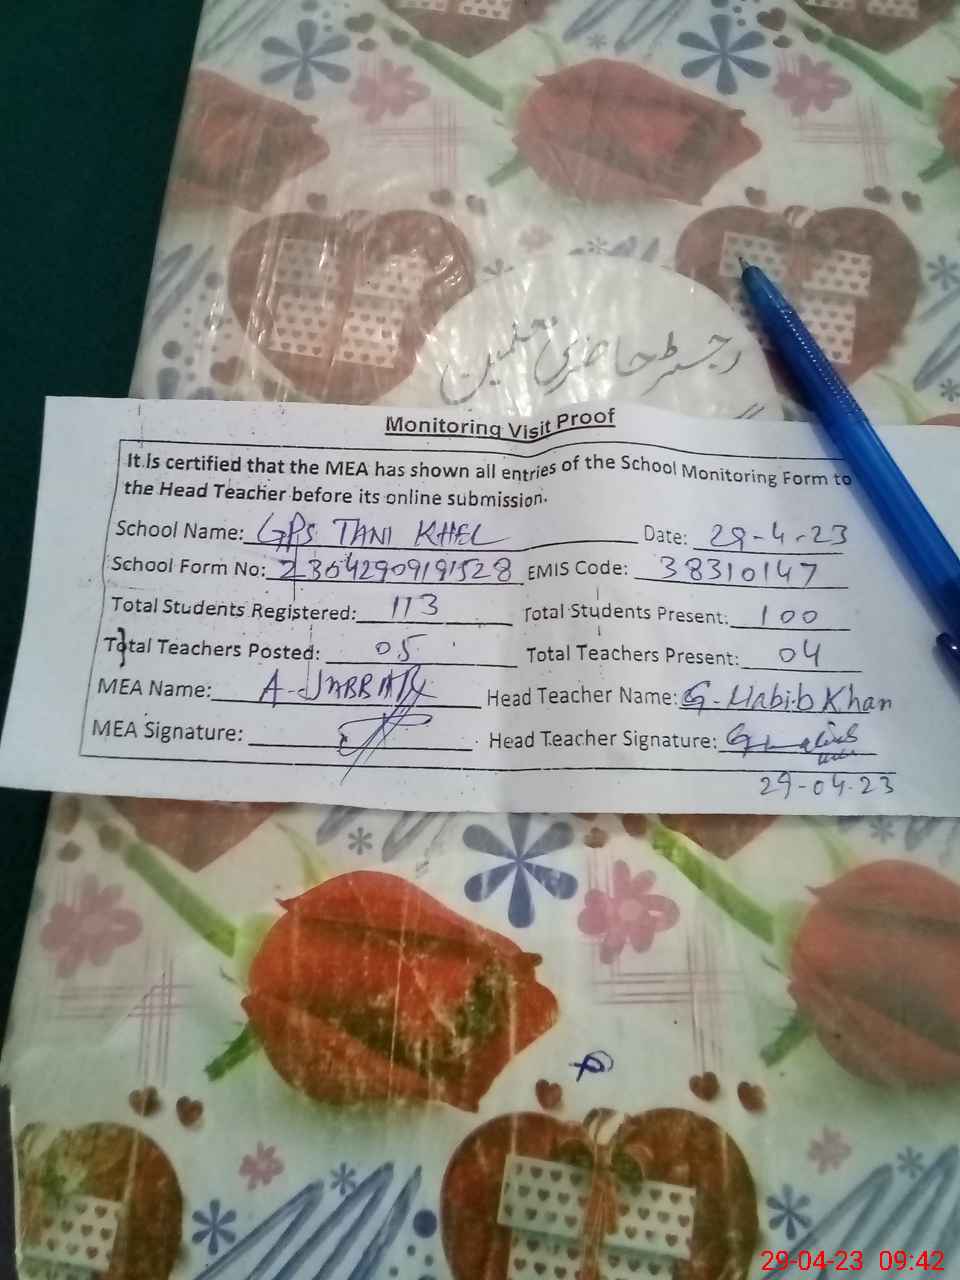 رجسٹر حاضری معلمین
Monitoring Visit Proof
It is certified that the MEA has shown all entries of the School Monitoring Form to
the Head Teacher before its online submission.
School Name: GPS TANI KHEL Date: 29-4-23
School Form No: 230429091911528 EMIS Code: 38310147
Total Students Registered: 113 Total Students Present: 100
Total Teachers Posted: 05 Total Teachers Present: 04
MEA Name: A-JABBAR Head Teacher Name: G-Habib Khan
MEA Signature: Head Teacher Signature:
29-04-23
29-04-23 09:42